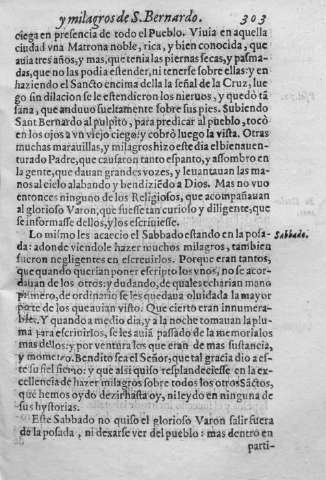 y milagros de S. Bernardo. 303
ciega en presencia de todo el Pueblo. Viuia en aquella
ciudad vna Matrona noble, rica, y bien conocida, que
auia tres años, y mas, que tenia las piernas secas, y pasma-
das, que no las podia estender, ni tenerse sobre ellas: y en
haziendo el Sancto encima della la señal de la Cruz, lue
go sin dilacion se le estendieron los nieruos, y quedò tã
sana, que anduuo sueltamente sobre sus pies. Subiendo
Sant Bernardo al pulpito, para predicar al pueblo, tocò
en los ojos a vn viejo ciego: y cobrò luego la vista. Otras
muchas marauillas, y milagros hizo este dia el bienauen-
turado Padre, que causaron tanto espanto, y assombro en
la gente, que dauan grandes vozes, y leuantauan las ma-
nos al cielo alabando y bendiziẽdo a Dios. Mas no vuo
entonces ninguno de los Religiosos, que acompañauan
al glorioso Varon, que fuesse tan curioso y diligente, que
se informasse dellos, y los escriuiesse.
Lo mismo les acaecio el Sabbado estando en la posa- Sabbado.
da: adonde viendole hazer muchos milagros, tambien
fueron negligentes en escreuirlos. Porque eran tantos,
que quando querian poner escripto los vnos, no se acor-
dauan de los otros: y dudando, de quales echarian mano
primero, de ordinario se les quedaua oluidada la mayor
parte de los que auian visto. Que cierto eran innumera-
bles. Y quando a medio dia, y a la noche tomauan la plu
ma para escriuirlos, se les auia passado de la memoria los
mas dellos: y por ventura los que eran de mas sustancia,
y momẽto. Bendito sea el Señor, que tal gracia dio a es-
te su fiel sieruo: y que assi quiso resplandeciesse en la ex-
cellencia de hazer milagros sobre todos los otros Sãctos,
que hemos oydo dezir hasta oy, ni leydo en ninguna de
sus hystorias.
Este Sabbado no quiso el glorioso Varon salir fuera
de la posada, ni dexarse ver del pueblo: mas dentro en
parti-